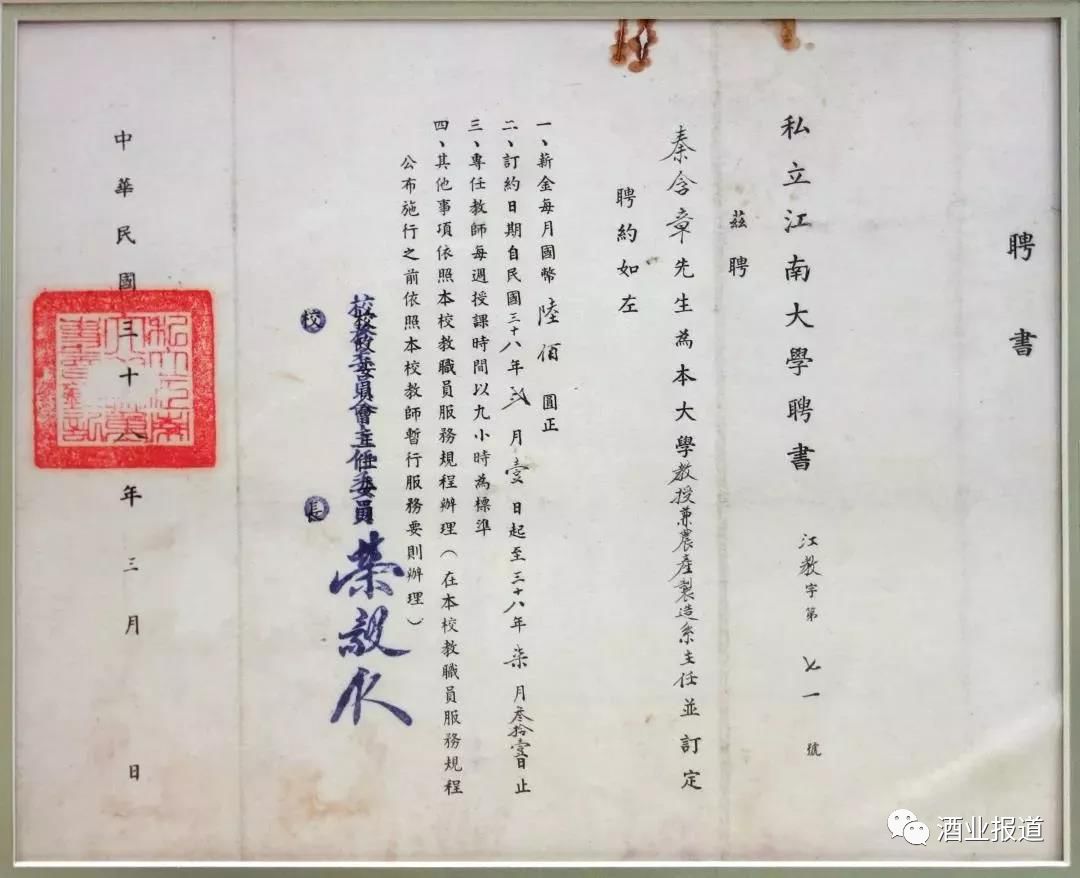 聘書
私立江南大學聘書
江教字第七一號
茲聘
秦含章先生為本大學教授兼農產製造系主任並訂定
聘約如左
一、薪金每月國幣陸佰圓正
二、訂約日期自民國三十八年貳月壹日起至三十八年柒月叁拾壹日止
三、專任教師每週授課時間以九小時為標準
四、其他事項依照本校教職員服務規程辦理（在本校教職員服務規程
公布施行之前依照本校教師暫行服務要則辦理）
校務委員會主任委員 榮毅仁
校長
中華民國三十八年三月 日
酒业报道